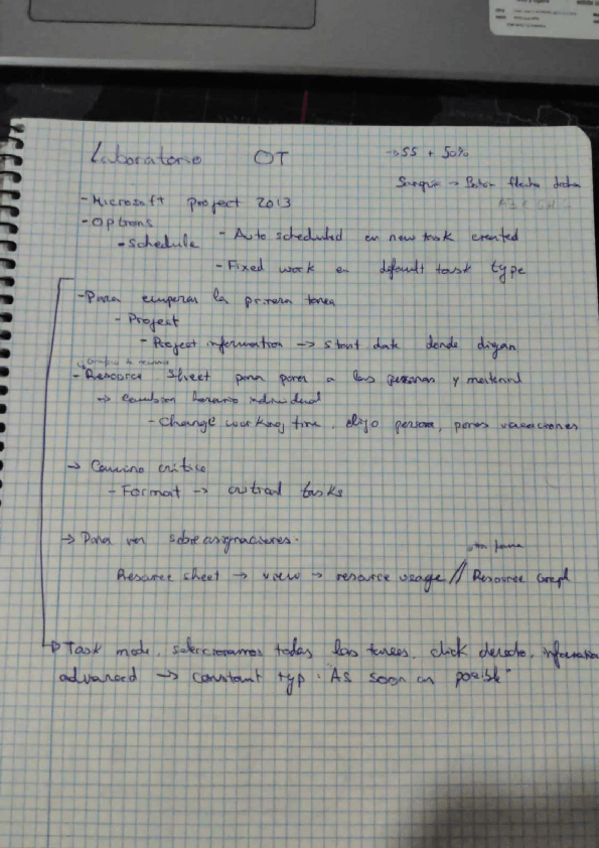 Laboratorio OT
→ SS + 50%
→ Botón flecha
- Microsoft Project 2013
- Options
- Schedule - Auto scheduled en new task created
- Fixed work en default task type
- Para empezar la primera tarea
- Project
- Project information → start date donde digan
- Resource Sheet para poner a las personas y material
→ Cambiar horario individual
- Change working time, elijo persona, pones vacaciones
→ Camino crítico
- Format → critical tasks
→ Para ver sobreasignaciones.
otra forma
Resource sheet → view → resource usage // Resource Graph
→ Task mode, seleccionamos todas las tareas, click derecho, information
advanced → constant typ. As soon as posible"